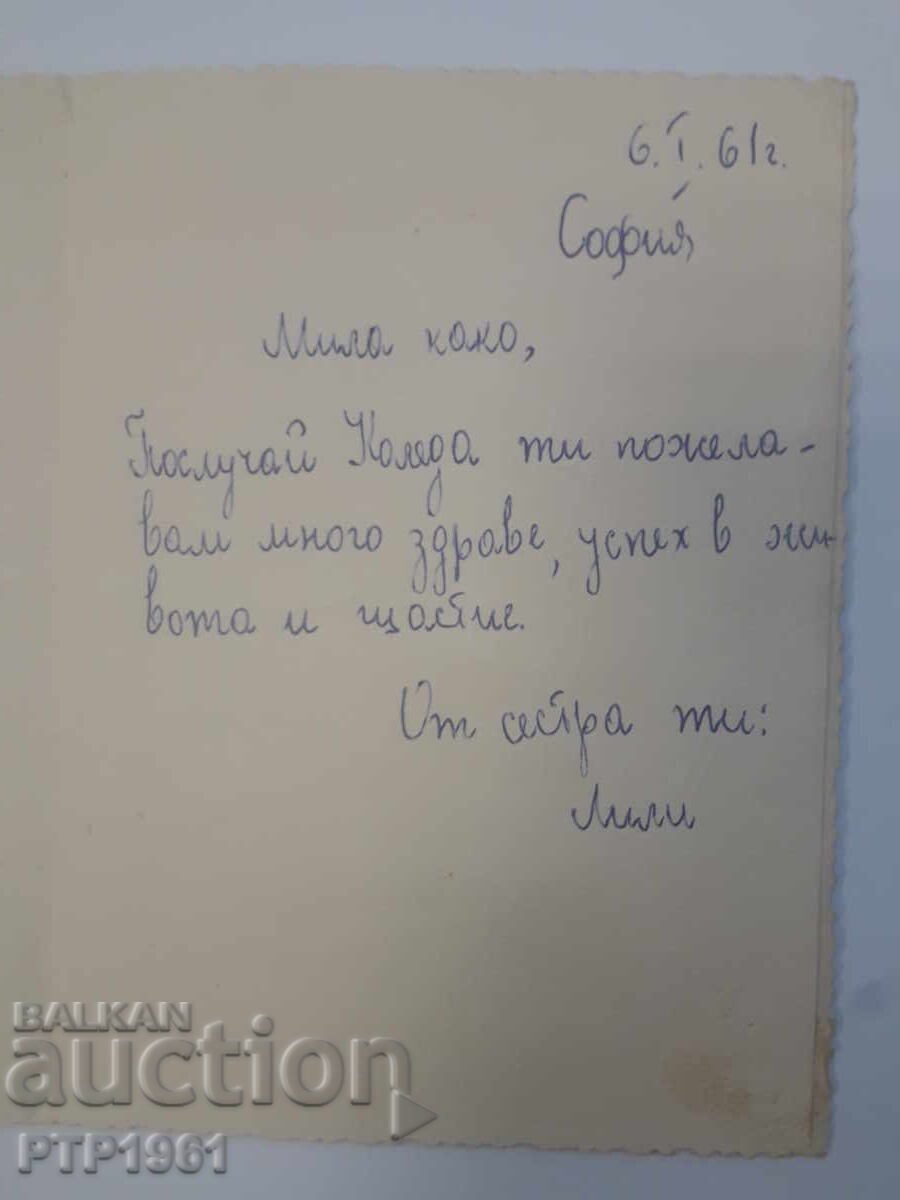 6.I.61г.
София
Мила како,
Послучай Коледа ти пожела-
вам много здраве, успех в жи-
вота и щастие.
От сестра ти:
Лили
BALKAN
auction
PTP1961